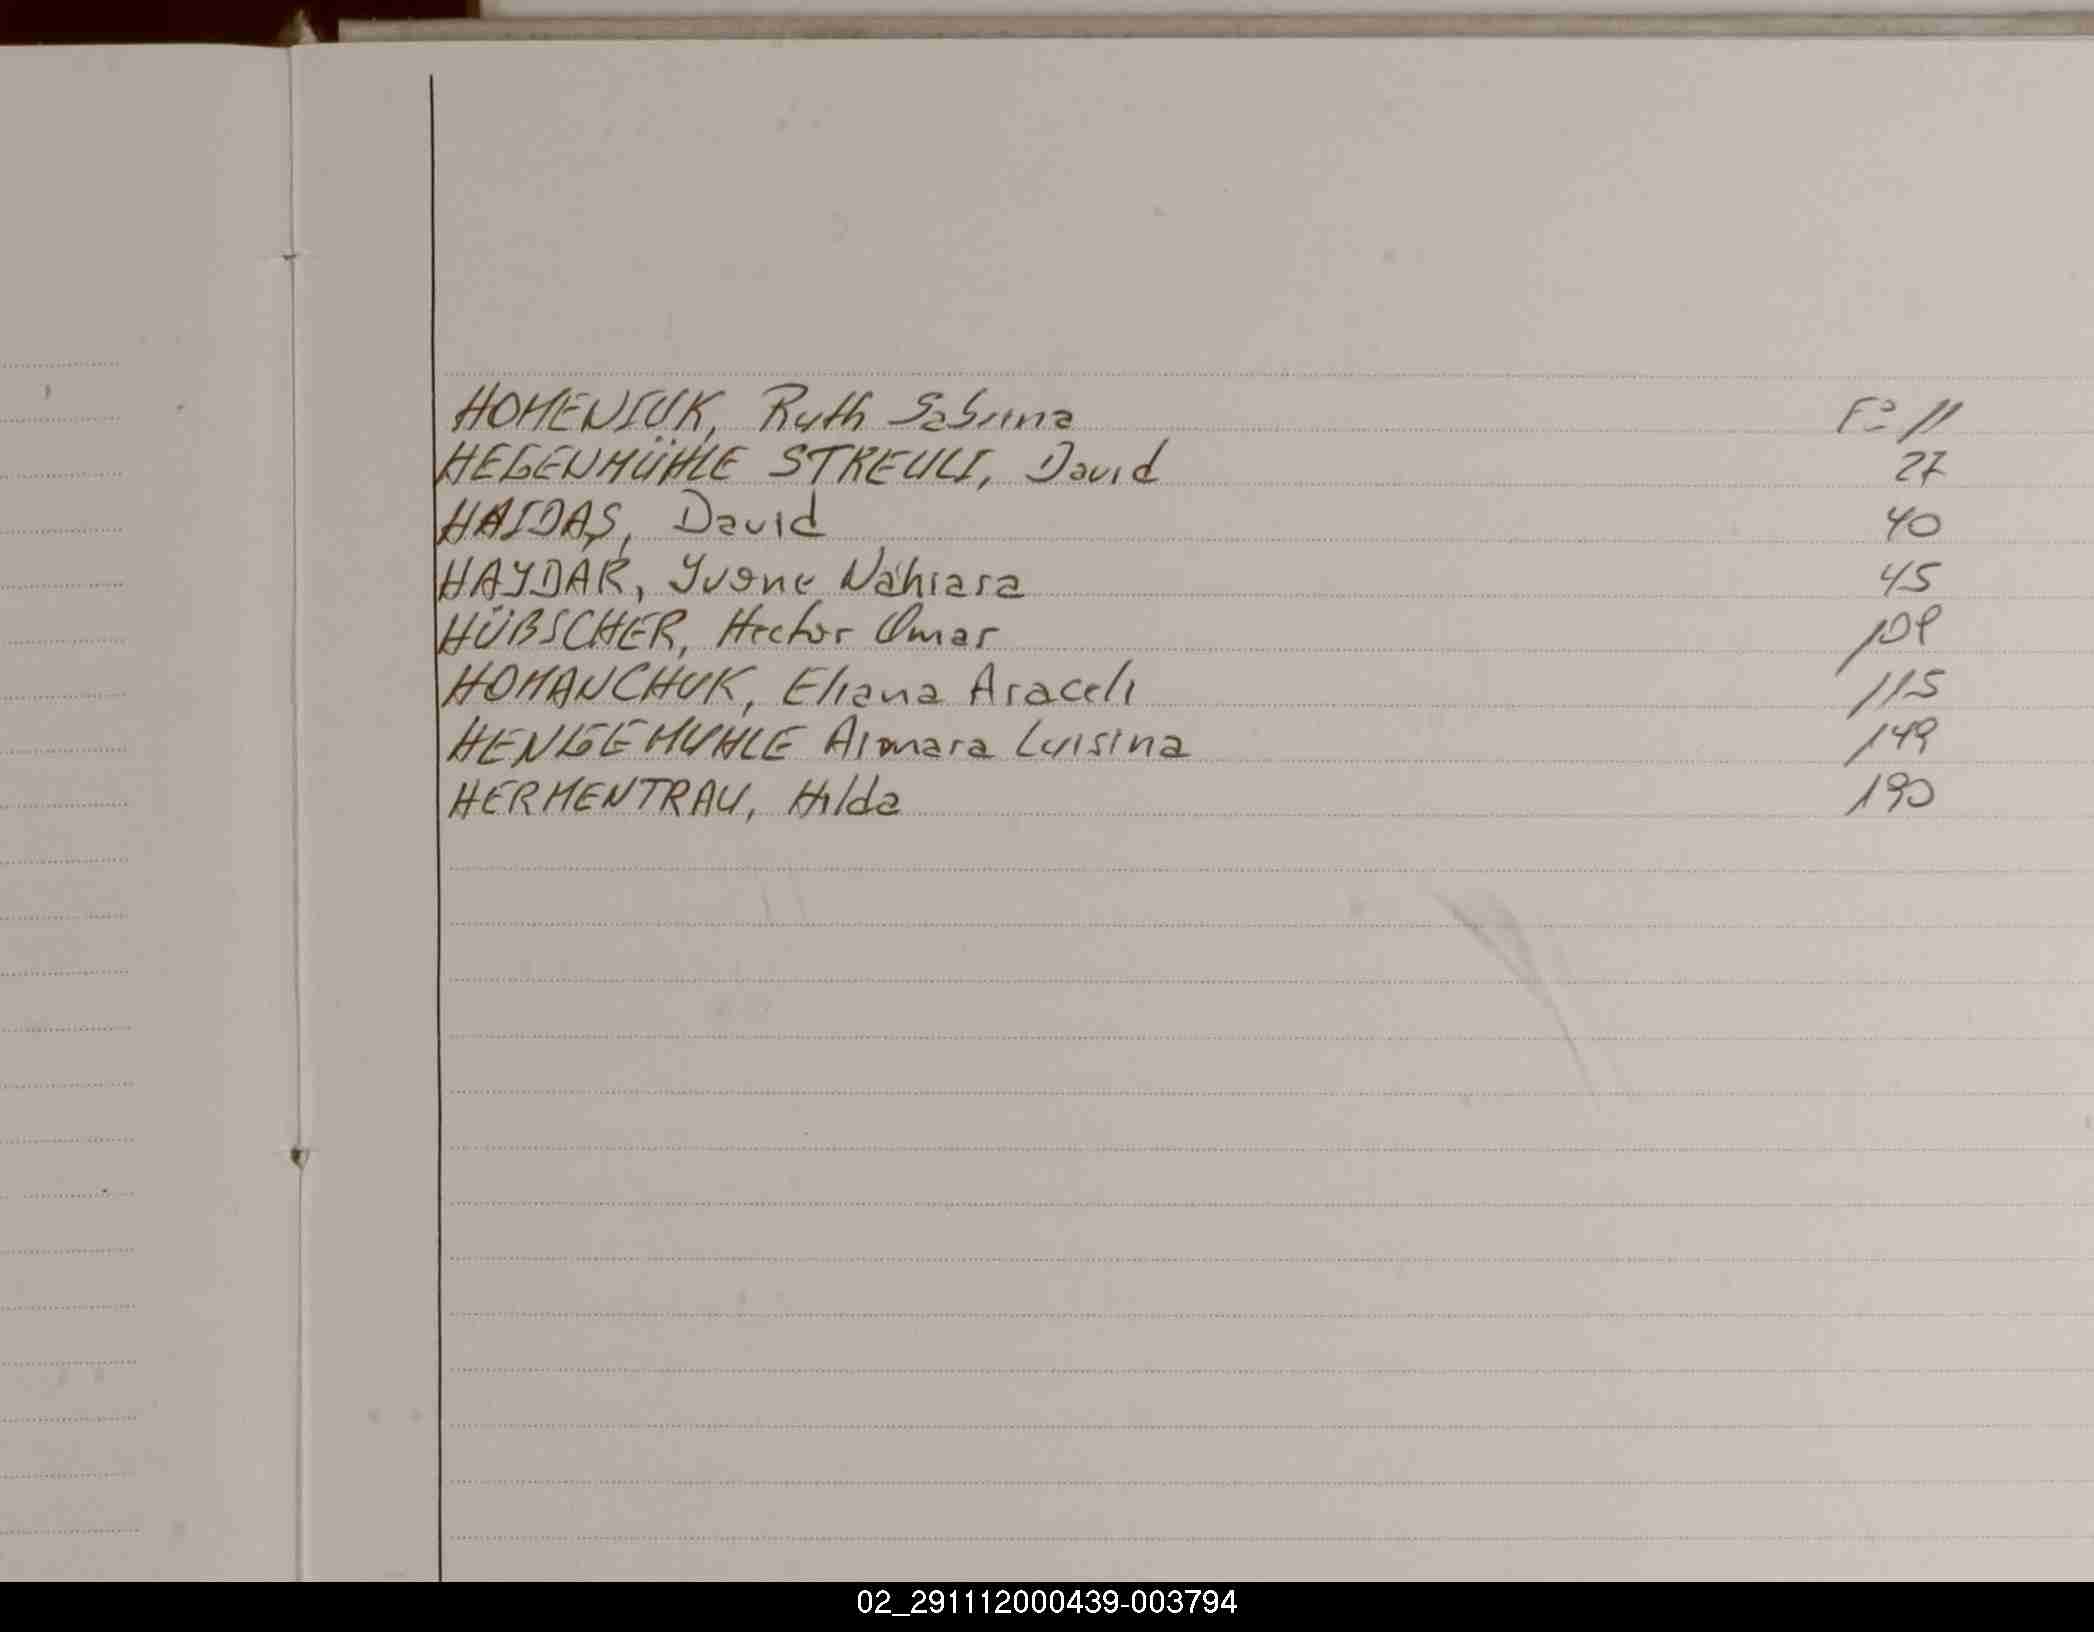 HOMENIUK, Ruth Sabrina Fº 11
HEGENMÜHLE STREULI, David 27
HAIDAS, David 40
HAYDAR, Yvone Nahiara 45
HÜBSCHER, Hector Omar 109
HOMANCHUK, Eliana Araceli 115
HENGEMUHLE Aimara Luisina 149
HERMENTRAU, Hilda 190
02_291112000439-003794